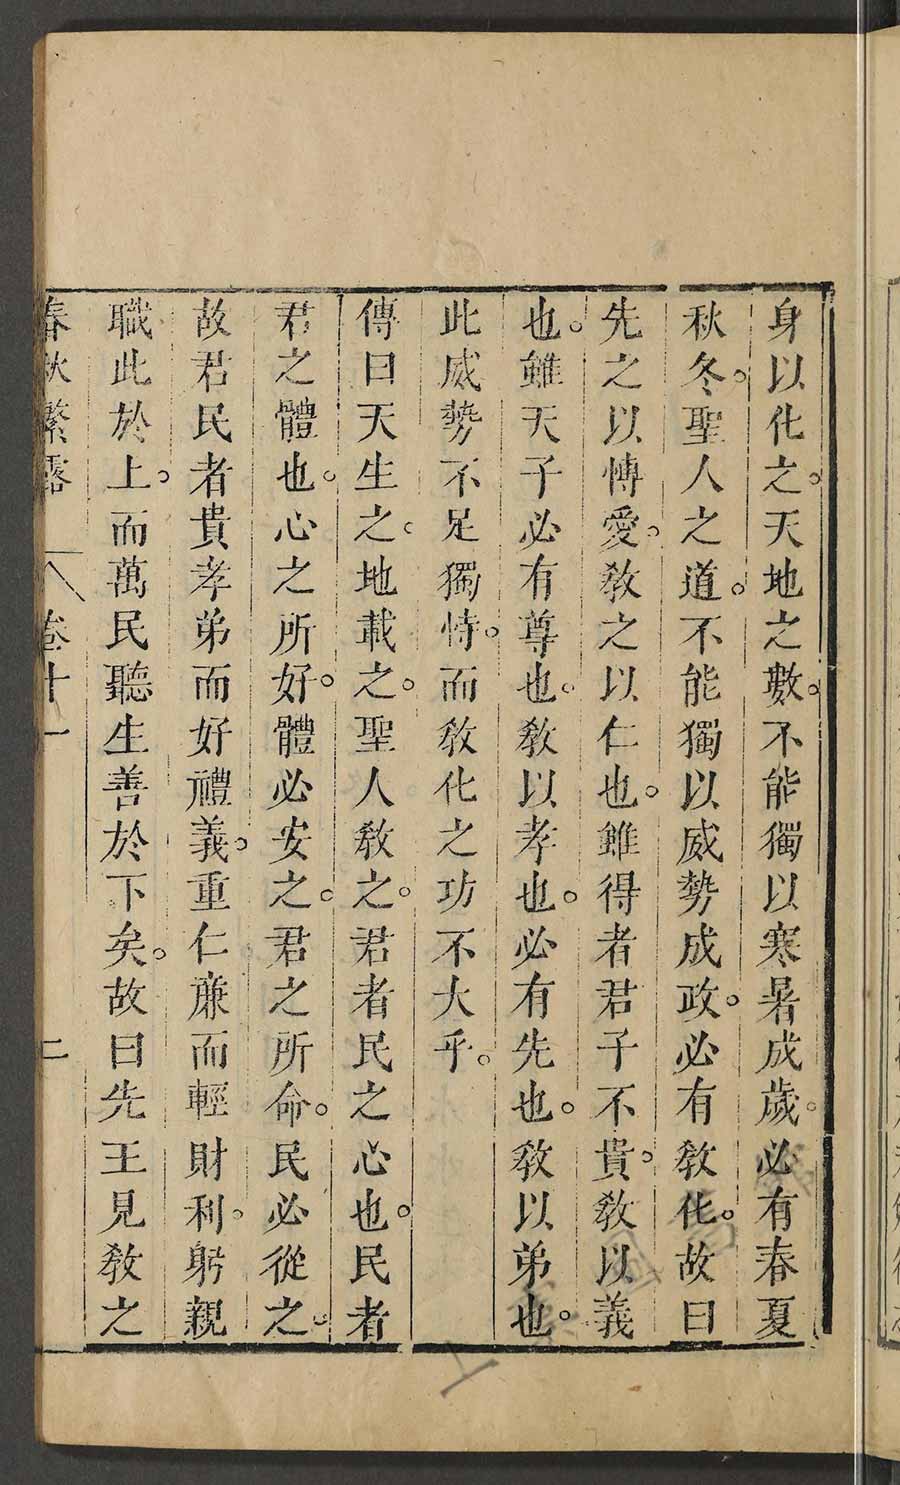 身以化之。天地之數。不能獨以寒暑成歲。必有春夏
秋冬。聖人之道。不能獨以威勢成政。必有敎化。故曰
先之以愽愛。敎之以仁也。雖得者君子不貴。敎以義
也。雖天子必有尊也。敎以孝也。必有先也。敎以弟也。
此威勢不足獨恃。而敎化之功不大乎。
傳曰天生之。地載之。聖人敎之。君者民之心也。民者
君之體也。心之所好。體必安之。君之所命。民必從之。
故君民者貴孝弟而好禮義。重仁廉而輕財利。躬親
職此於上。而萬民聽生善於下矣。故曰先王見敎之
春秋繁露 卷十一 二